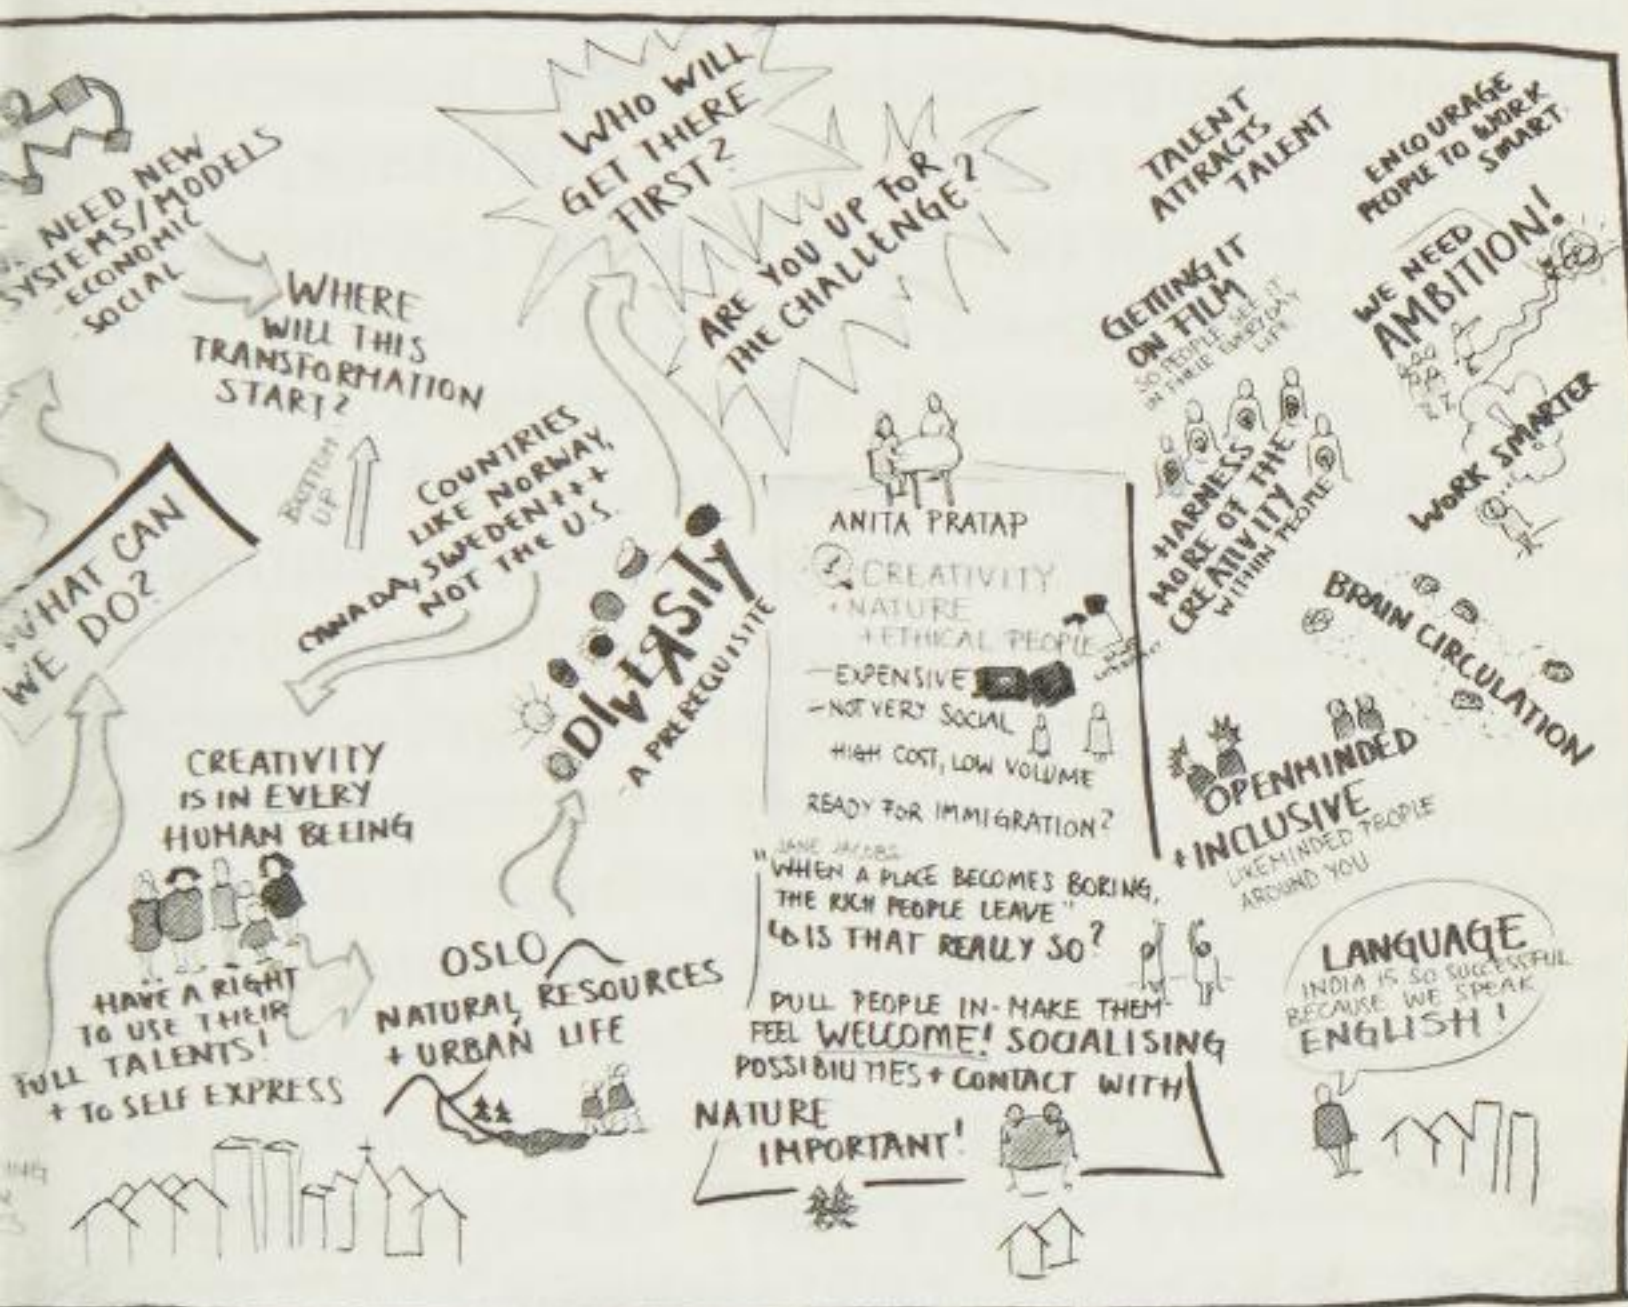 NEED NEW
SYSTEMS/MODELS
-ECONOMIC
-SOCIAL
WHERE
WILL THIS
TRANSFORMATION
START?
BOTTOM
UP
WHAT CAN
WE DO?
COUNTRIES
LIKE NORWAY,
CANADA, SWEDEN+++
NOT THE U.S.
WHO WILL
GET THERE
FIRST?
ARE YOU UP FOR
THE CHALLENGE?
DIVERSITY
-A PREREQUISITE
CREATIVITY
IS IN EVERY
HUMAN BEEING
HAVE A RIGHT
TO USE THEIR
FULL TALENTS!
+ TO SELF EXPRESS
OSLO
NATURAL RESOURCES
+ URBAN LIFE
ANITA PRATAP
CREATIVITY
+ NATURE
+ ETHICAL PEOPLE
-EXPENSIVE
-NOT VERY SOCIAL
HIGH COST, LOW VOLUME
READY FOR IMMIGRATION?
JANE JACOBS
"WHEN A PLACE BECOMES BORING,
THE RICH PEOPLE LEAVE"
IS THAT REALLY SO?
PULL PEOPLE IN - MAKE THEM
FEEL WELCOME! SOCIALISING
POSSIBILITIES + CONTACT WITH
NATURE
IMPORTANT!
TALENT
ATTRACTS
TALENT
ENCOURAGE
PEOPLE TO WORK
SMART
GETTING IT
ON FILM
SO PEOPLE SEE IT
IN THEIR EVERYDAY
LIFE
WE NEED
AMBITION!
HARNESS
MORE OF THE
CREATIVITY
WITHIN PEOPLE
WORK SMARTER
BRAIN CIRCULATION
OPENMINDED
+ INCLUSIVE
LIKEMINDED PEOPLE
AROUND YOU
LANGUAGE
INDIA IS SO SUCCESSFUL
BECAUSE WE SPEAK
ENGLISH!